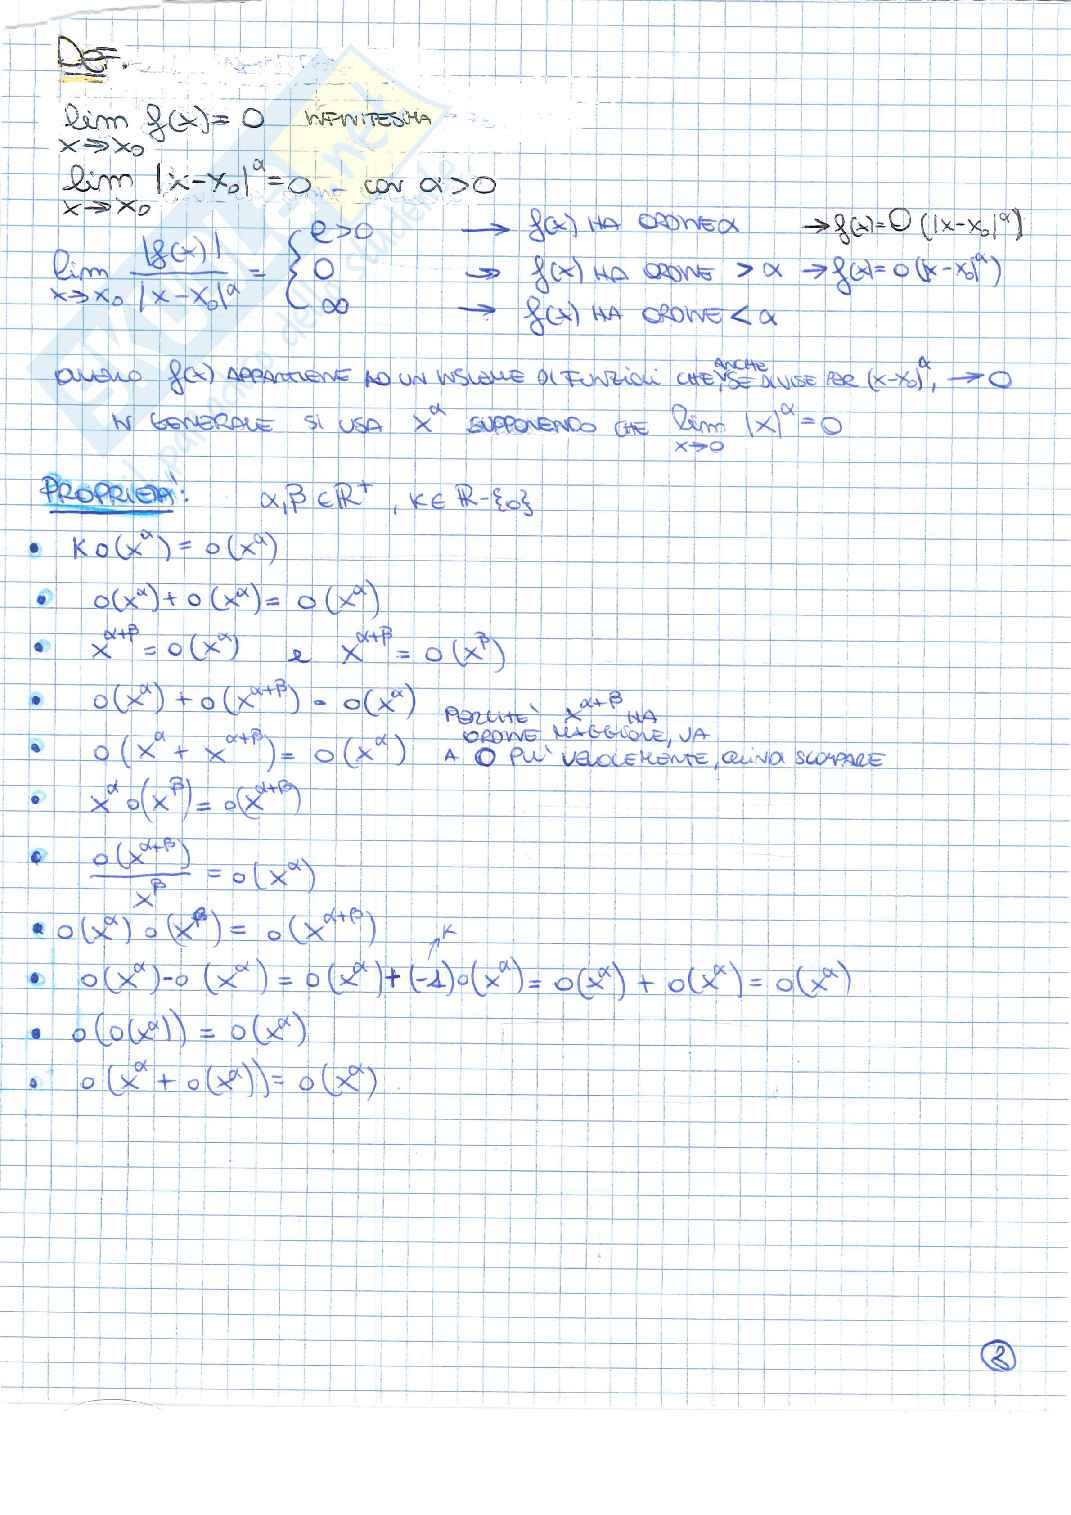 DEF.
lim f(x) = 0 INFINITESIMA
x→x₀
lim |x-x₀|^α = 0 - con α>0
x→x₀
lim |f(x)| / |x-x₀|^α = { l>0 → f(x) HA ORDINE α → f(x) = O(|x-x₀|^α)
x→x₀ 0 → f(x) HA ORDINE > α → f(x) = o(|x-x₀|^α)
∞ → f(x) HA ORDINE < α
f(x) APPARTIENE AD UN INSIEME DI FUNZIONI CHE, ANCHE SE DIVISE PER (x-x₀)^α, → 0
IN GENERALE SI USA x^α SUPPONENDO CHE lim |x|^α = 0
x→0
PROPRIETA': α,β ∈ ℝ⁺, K ∈ ℝ-{0}
• K o(x^α) = o(x^α)
• o(x^α) + o(x^α) = o(x^α)
• x^(α+β) = o(x^α) e x^(α+β) = o(x^β)
• o(x^α) + o(x^(α+β)) = o(x^α) PERCHE' x^(α+β) HA
ORDINE MAGGIORE, VA
• o(x^α + x^(α+β)) = o(x^α) A 0 PIU' VELOCEMENTE, QUINDI SCOMPARE
• x^α o(x^β) = o(x^(α+β))
• o(x^(α+β)) / x^β = o(x^α)
• o(x^α) o(x^β) = o(x^(α+β))
K
• o(x^α) - o(x^α) = o(x^α) + (-1)o(x^α) = o(x^α) + o(x^α) = o(x^α)
• o(o(x^α)) = o(x^α)
• o(x^α + o(x^α)) = o(x^α)
2